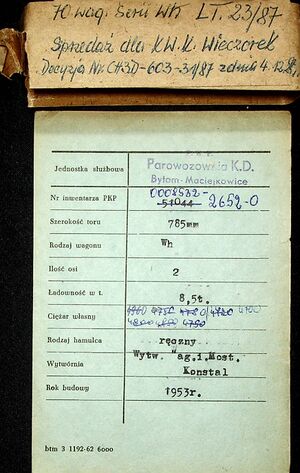 70 wag. Serii Wh LT. 23/87
Sprzedaż dla KW.K. Wieczorek
Decyzja Nr CH3D-603-31/87 z dnia 4.12.87
Jednostka służbowa
Parowozownia K.D.
Bytom-Maciejkowice
Nr inwentarza PKP
0008532-
51044 2652-0
Szerokość toru
785mm
Rodzaj wagonu
Wh
Ilość osi
2
Ładowność w t.
8,5t.
Ciężar własny
4750
Rodzaj hamulca
ręczny
Wytwórnia
Wytw. "ag.i.Most.
Konstal
Rok budowy
1953r.
btm 3 1192-62 6000